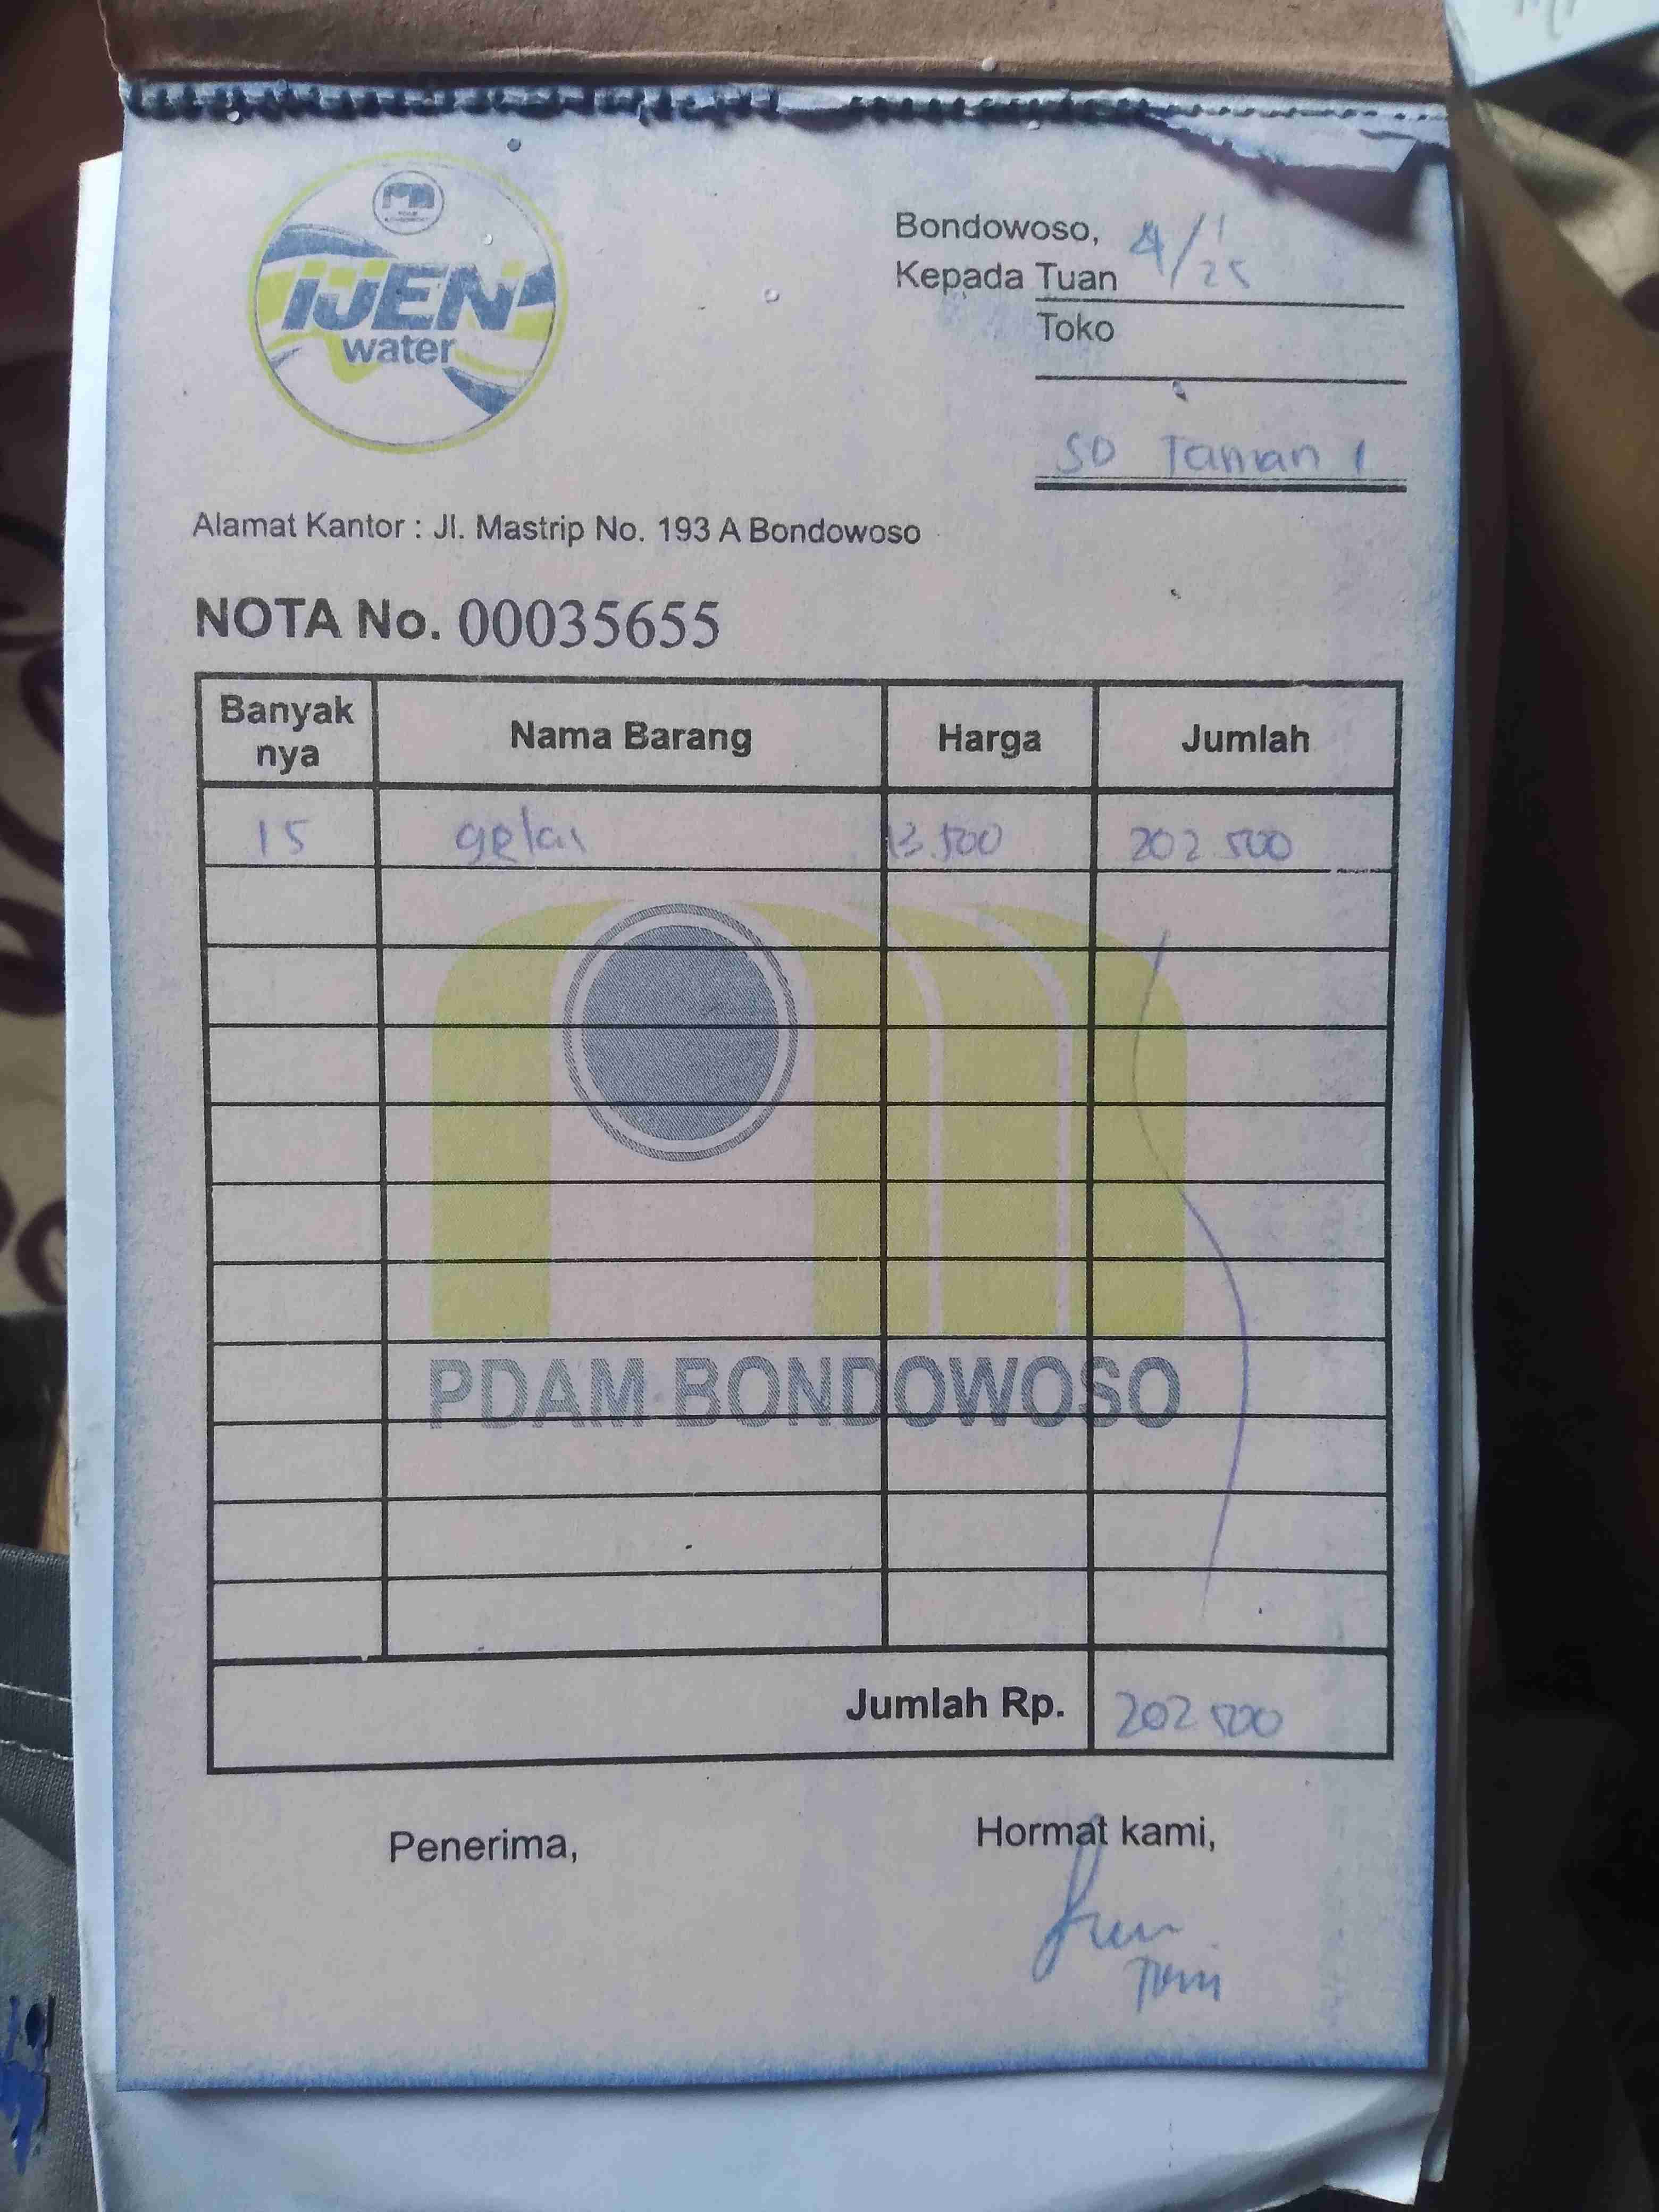 IJEN
water
Bondowoso, 4/1/25
Kepada Tuan
Toko
SD Taman 1
Alamat Kantor : Jl. Mastrip No. 193 A Bondowoso
NOTA No. 00035655
Banyak nya Nama Barang Harga Jumlah
15 gelas 13.500 202 500
PDAM BONDOWOSO
Jumlah Rp. 202 500
Penerima, Hormat kami,